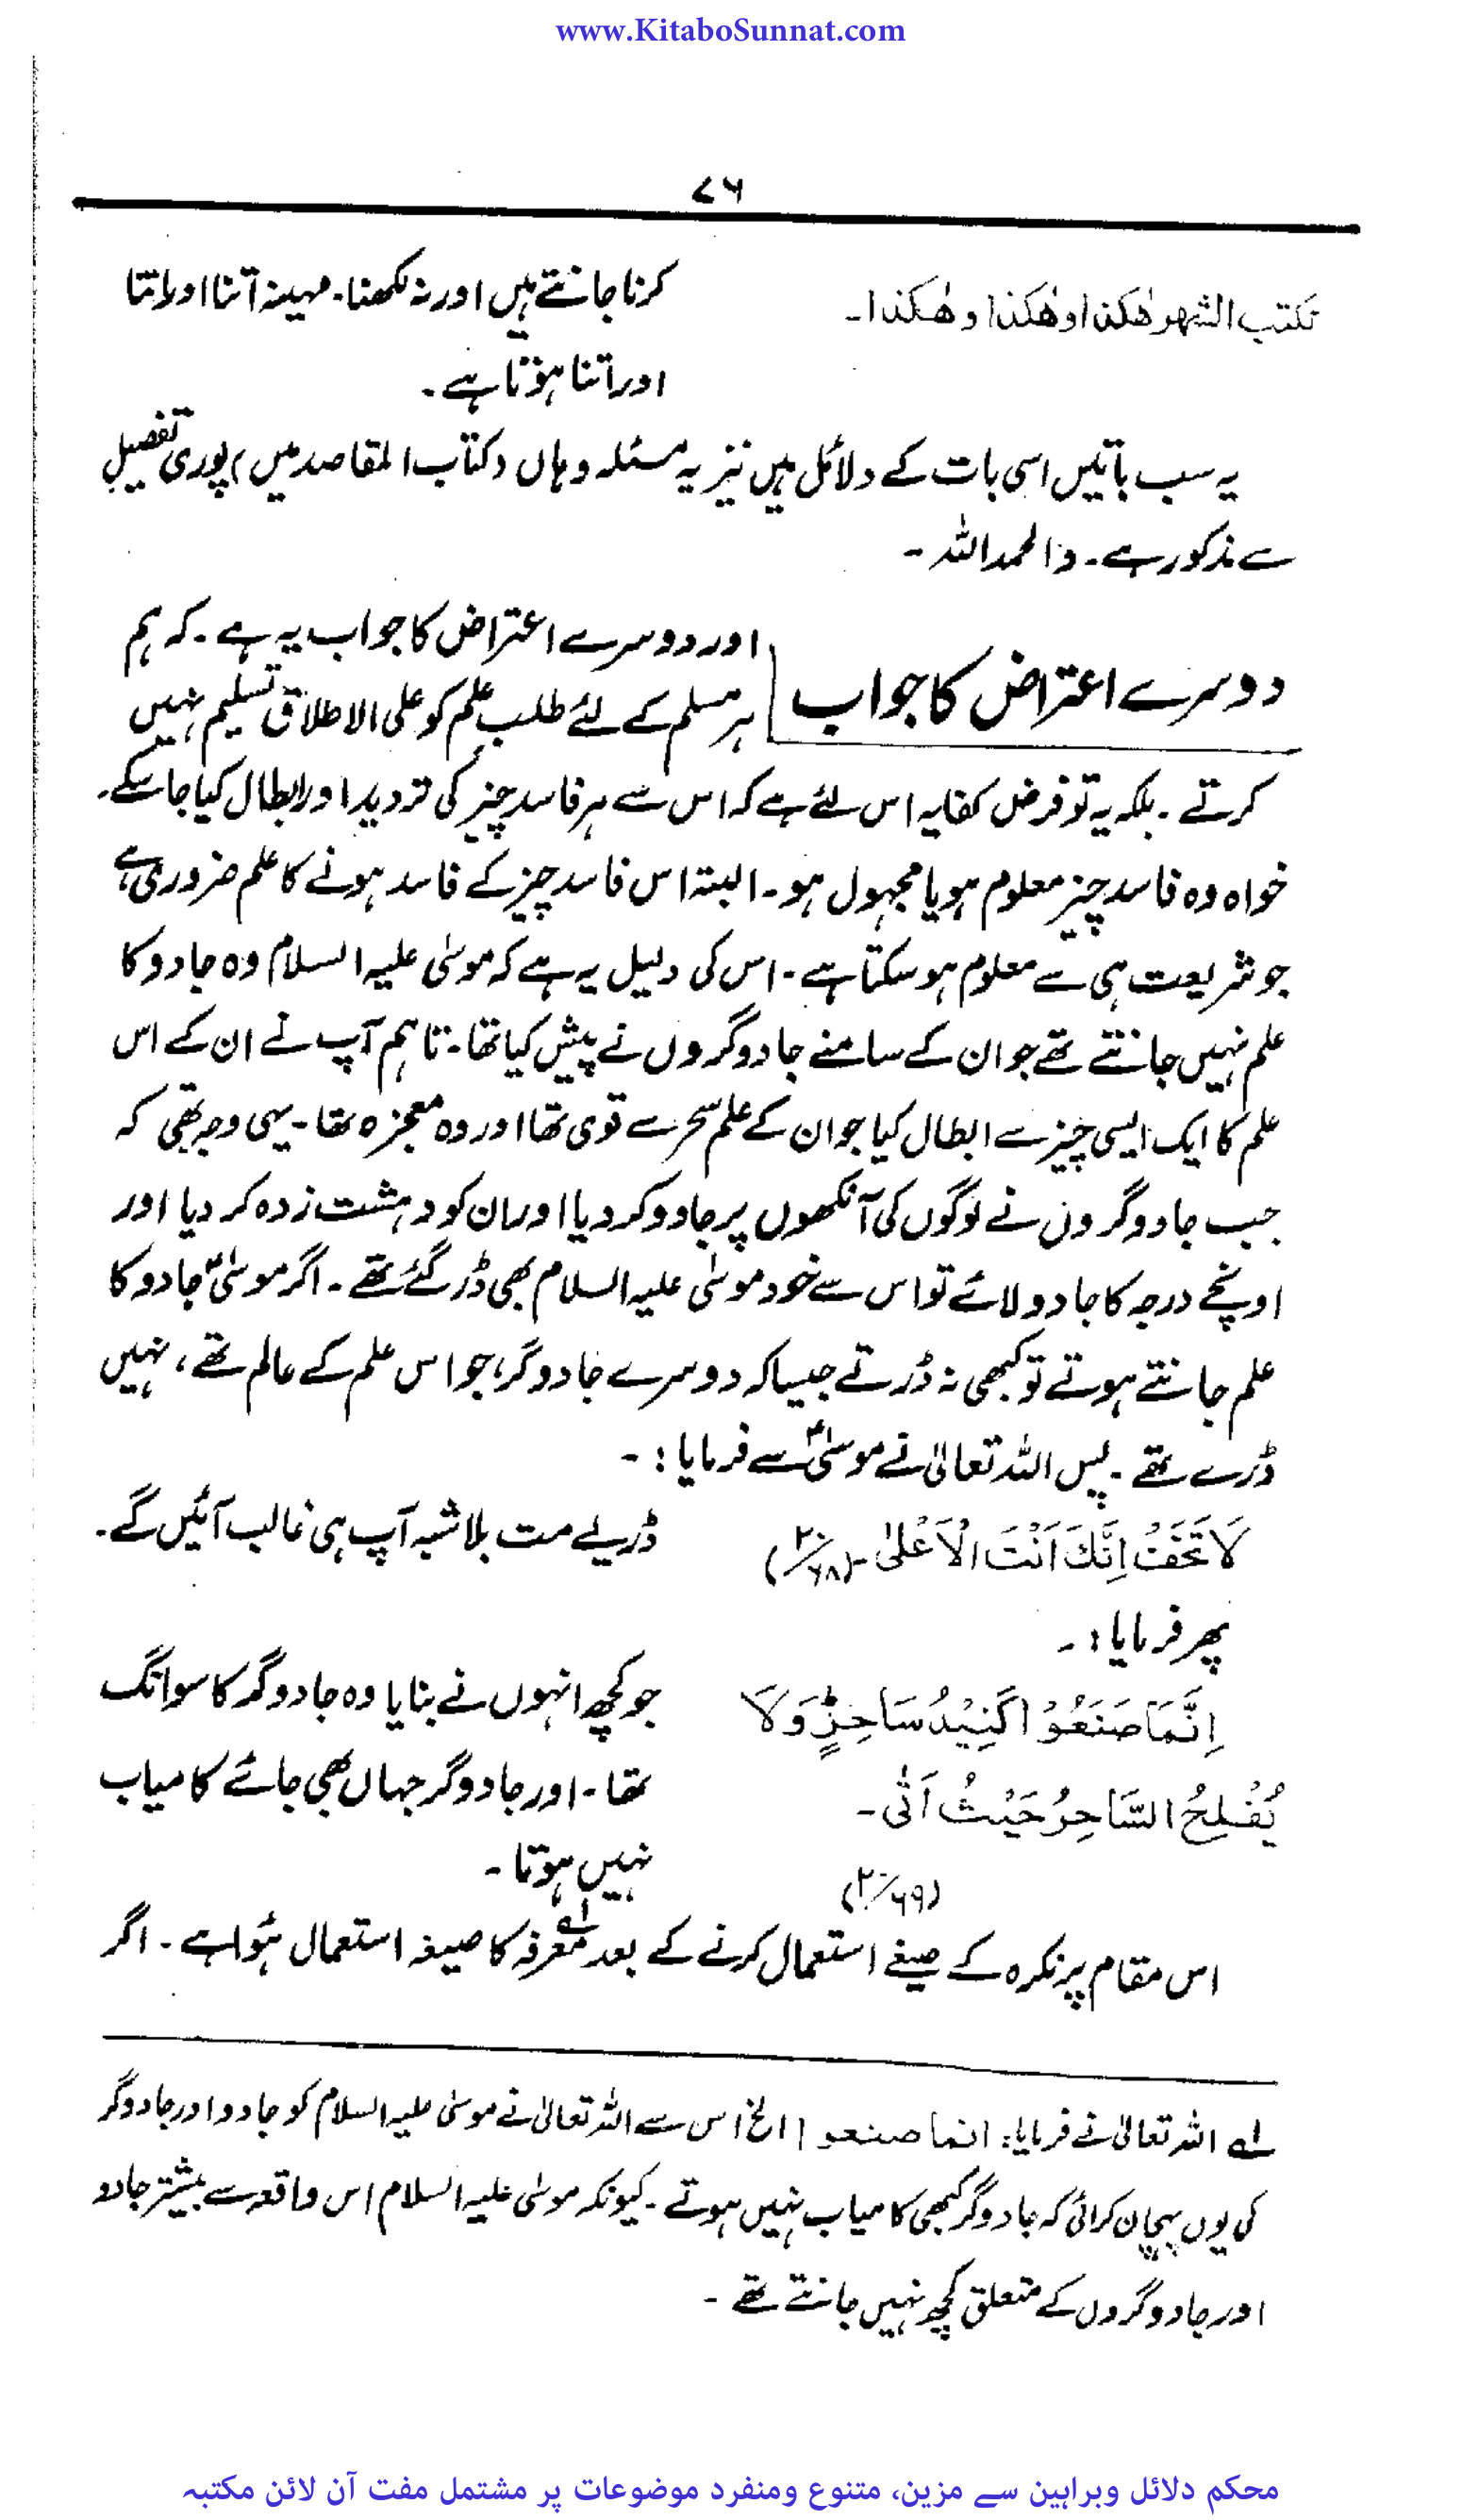 www.KitaboSunnat.com
۷۶
نكتب الشهر هٰكذا وهٰكذا وهٰكذا۔
کرنا جانتے ہیں اور نہ لکھنا۔ مہینہ اتنا اور اتنا
اور اتنا ہوتا ہے۔
یہ سب باتیں اسی بات کے دلائل ہیں نیز یہ مسئلہ وہاں (کتاب المقاصد میں) پوری تفصیل
سے مذکور ہے۔ والحمدللہ ۔
دوسرے اعتراض کا جواب
اور دوسرے اعتراض کا جواب یہ ہے۔ کہ ہم
ہر مسلم کے لئے طلب علم کو علی الاطلاق تسلیم نہیں
کرتے۔ بلکہ یہ تو فرض کفایہ اس لئے ہے کہ اس سے ہر فاسد چیز کی تردید اور ابطال کیا جاسکے۔
خواہ وہ فاسد چیز معلوم ہو یا مجہول ہو۔ البتہ اس فاسد چیز کے فاسد ہونے کا علم ضروری ہے
جو شریعت ہی سے معلوم ہو سکتا ہے۔ اس کی دلیل یہ ہے کہ موسٰی علیہ السلام وہ جادو کا
علم نہیں جانتے تھے جو ان کے سامنے جادوگروں نے پیش کیا تھا۔ تاہم آپ نے ان کے اس
علم کا ایک ایسی چیز سے ابطال کیا جو ان کے علم سحر سے قوی تھا اور وہ معجزہ تھا۔ یہی وجہ تھی کہ
جب جادوگروں نے لوگوں کی آنکھوں پر جادو کر دیا اور ان کو دہشت زدہ کر دیا اور
اونچے درجہ کا جادو لائے تو اس سے خود موسٰی علیہ السلام بھی ڈر گئے تھے۔ اگر موسٰیؑ جادو کا
علم جانتے ہوتے تو کبھی نہ ڈرتے جیسا کہ دوسرے جادوگر، جو اس علم کے عالم تھے، نہیں
ڈرے تھے۔ پس اللہ تعالیٰ نے موسٰیؑ سے فرمایا:۔
لَا تَخَفْ اِنَّكَ اَنْتَ الْاَعْلٰى۔ (۲۰/۶۸)
ڈریے مت بلاشبہ آپ ہی غالب آئیں گے۔
پھر فرمایا:۔
اِنَّمَا صَنَعُوْا كَيْدُ سَاحِرٍ ؕ وَلَا
جو کچھ انہوں نے بنایا وہ جادوگر کا سوانگ
يُفْلِحُ السَّاحِرُ حَيْثُ اَتٰى۔
تھا۔ اور جادوگر جہاں بھی جائے کامیاب
نہیں ہوتا۔
(۲۰/۶۹)
اس مقام پر نکرہ کے صیغے استعمال کرنے کے بعد معرفہ لے کا صیغہ استعمال ہُوا ہے۔ اگر
لے اللہ تعالیٰ نے فرمایا: انما صنعوا الخ اس سے اللہ تعالیٰ نے موسٰی علیہ السلام کو جادو اور جادوگر
کی یوں پہچان کرائی کہ جادوگر کبھی کامیاب نہیں ہوتے۔ کیونکہ موسٰی علیہ السلام اس واقعہ سے بیشتر جادو
اور جادوگروں کے متعلق کچھ نہیں جانتے تھے ۔
محکم دلائل وبراہین سے مزین، متنوع ومنفرد موضوعات پر مشتمل مفت آن لائن مکتبہ